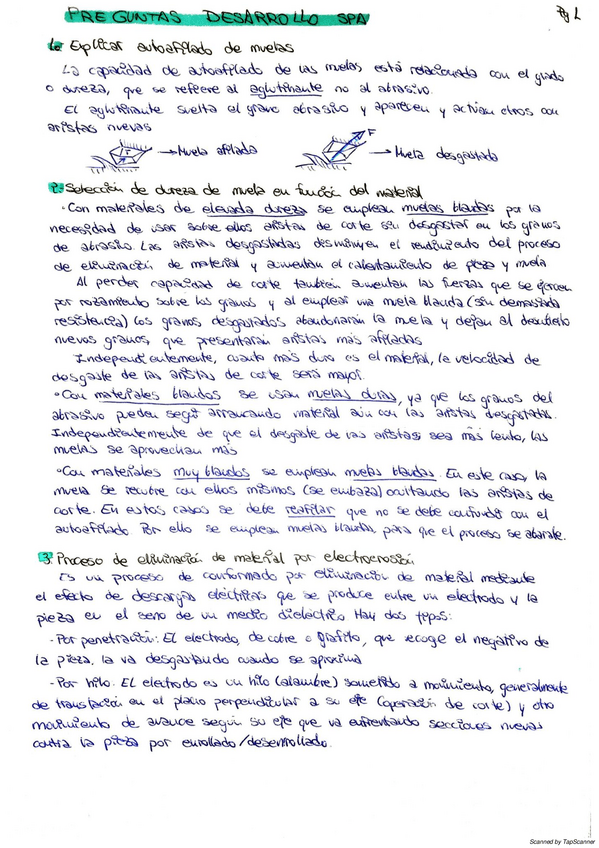 PREGUNTAS DESARROLLO SPA
Pg 1
1. Explicar autoafilado de muelas
La capacidad de autoafilado de las muelas, está relacionada con el grado
o dureza, que se refiere al aglutinante no al abrasivo.
El aglutinante suelta el grano abrasivo y aparecen y actúan otros con
aristas nuevas
→Muela afilada
F
→Muela desgastada
2. Selección de dureza de muela en función del material
·Con materiales de elevada dureza se emplean muelas blandas por la
necesidad de usar sobre ellos aristas de corte sin desgastar en los granos
de abrasivo. Las aristas desgastadas disminuyen el rendimiento del proceso
de eliminación de material y aumentan el calentamiento de pieza y muela
Al perder capacidad de corte también aumentan las fuerzas que se ejercen
por rozamiento sobre los granos y al emplear una muela blanda (sin demasiada
resistencia) los granos desgastados abandonarán la muela y dejan al descubierto
nuevos granos, que presentarán aristas más afiladas
Independientemente, cuanto más duro es el material, la velocidad de
desgaste de las aristas de corte será mayor.
·Con materiales blandos se usan muelas duras, ya que los granos del
abrasivo pueden seguir arrancando material aún con las aristas desgastadas.
Independientemente de que el desgaste de las aristas sea más lento, las
muelas se aprovechan más
·Con materiales muy blandos se emplean muelas blandas. En este caso, la
muela se recubre con ellos mismos (se embaza) ocultando las aristas de
corte. En estos casos se debe reafilar que no se debe confundir con el
autoafilado. Por ello se emplean muelas blandas, para que el proceso se abarate.
3. Proceso de eliminación de material por electroerosión
Es un proceso de conformado por eliminación de material mediante
el efecto de descargas eléctricas que se produce entre un electrodo y la
pieza en el seno de un medio dieléctrico Hay dos tipos:
-Por penetración: El electrodo, de cobre o grafito, que recoge el negativo de
la pieza, la va desgastando cuando se aproxima
-Por hilo: El electrodo es un hilo (alambre) sometido a movimiento, generalmente
de translación en el plano perpendicular a su eje (operación de corte) y otro
movimiento de avance según su eje que va enfrentando secciones nuevas
contra la pieza por enrollado/desenrollado.
Scanned by TapScanner